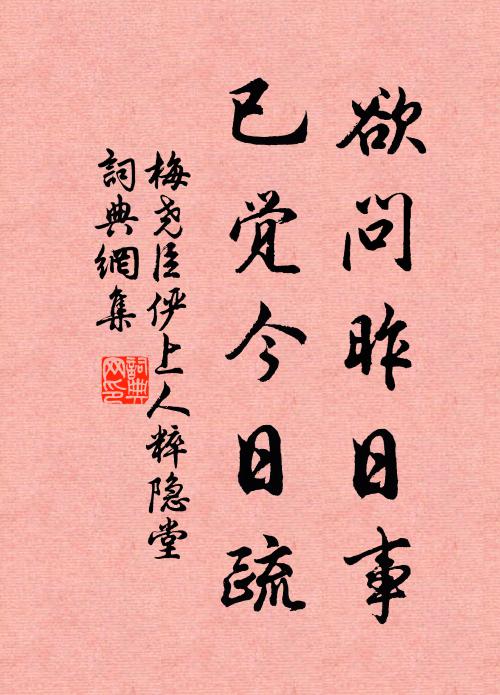 欲问昨日事
已觉今日疏
梅尧臣俨上人粹隐堂
詞典網集
詞典网印